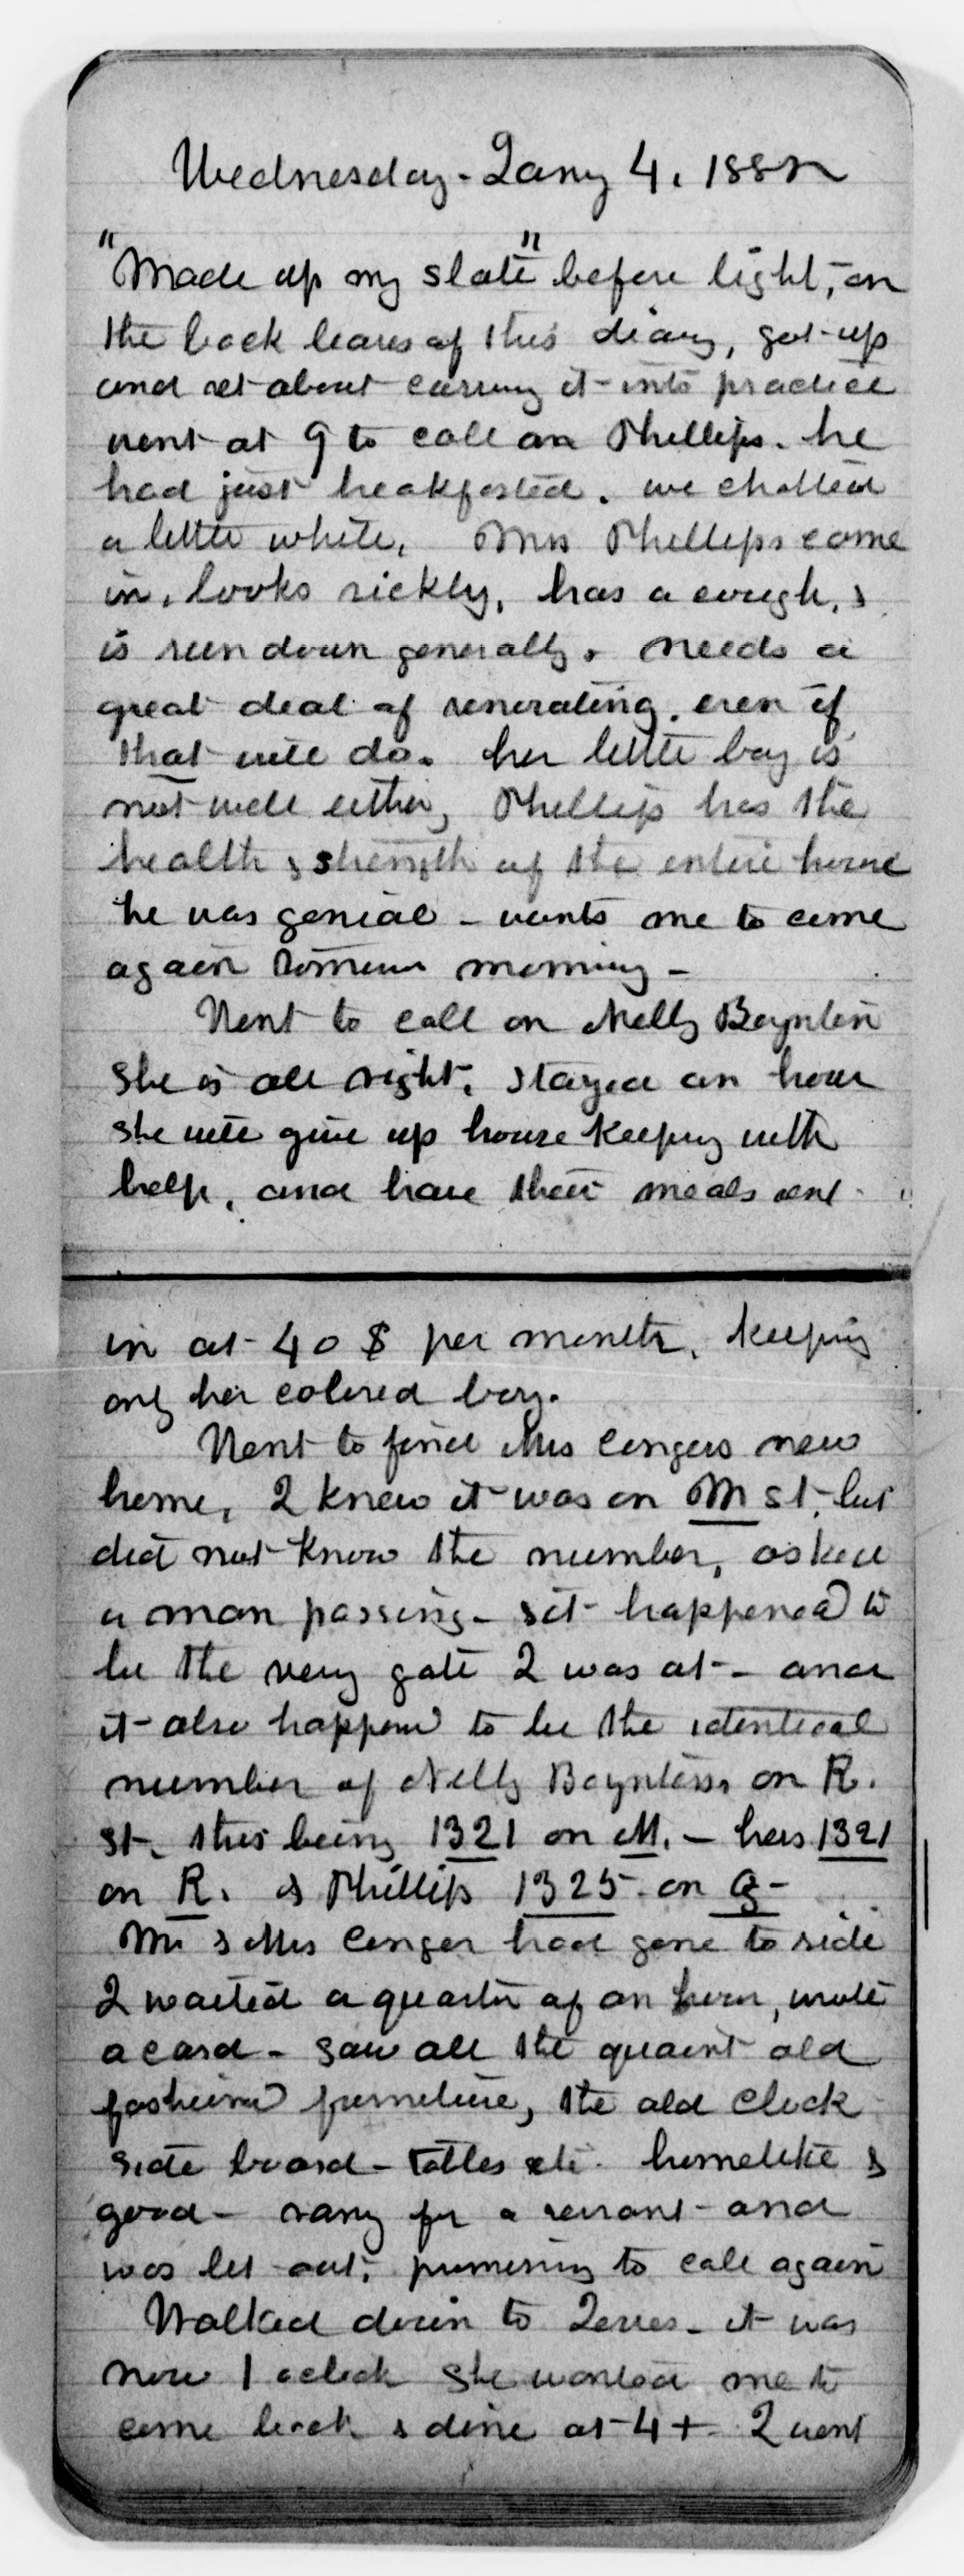 Wednesday - Jany 4. 1882
"Made up my slate" before light, on
the back leaves of this diary, got up
and set about carrying it into practice
went at 9 to call on Phillips. he
had just breakfasted. we chatted
a little while. Mrs Phillips came
in. looks sickly, has a cough, &
is run down generally. needs a
great deal of renerating. even if
that will do. her little boy is
not well either, Phillips has the
health & strength of the entire house
he was genial - wants me to come
again tomorrow morning -
Went to call on Nelly Boynton
She is all right. stayed an hour
she will give up house keeping with
help, and have their meals sent
in at 40 $ per month. keeping
only her colored boy.
Went to find Mrs Congers new
home, I knew it was on M st. but
did not know the number, asked
a man passing - it happened to
be the very gate I was at - and
it also happened to be the identical
number of Nelly Boyntons on R.
st. this being 1321 on M. - hers 1321
on R. & Phillips 1325 on G -
Mr & Mrs Conger had gone to ride
I waited a quarter of an hour, wrote
a card - saw all the quaint old
fashioned furniture, the old clock
side board - tables etc. homelike &
good - rang for a servant - and
was let out. promising to call again
Walked down to - it was
now 1 oclock she wanted me to
come back & dine at 4 + I went